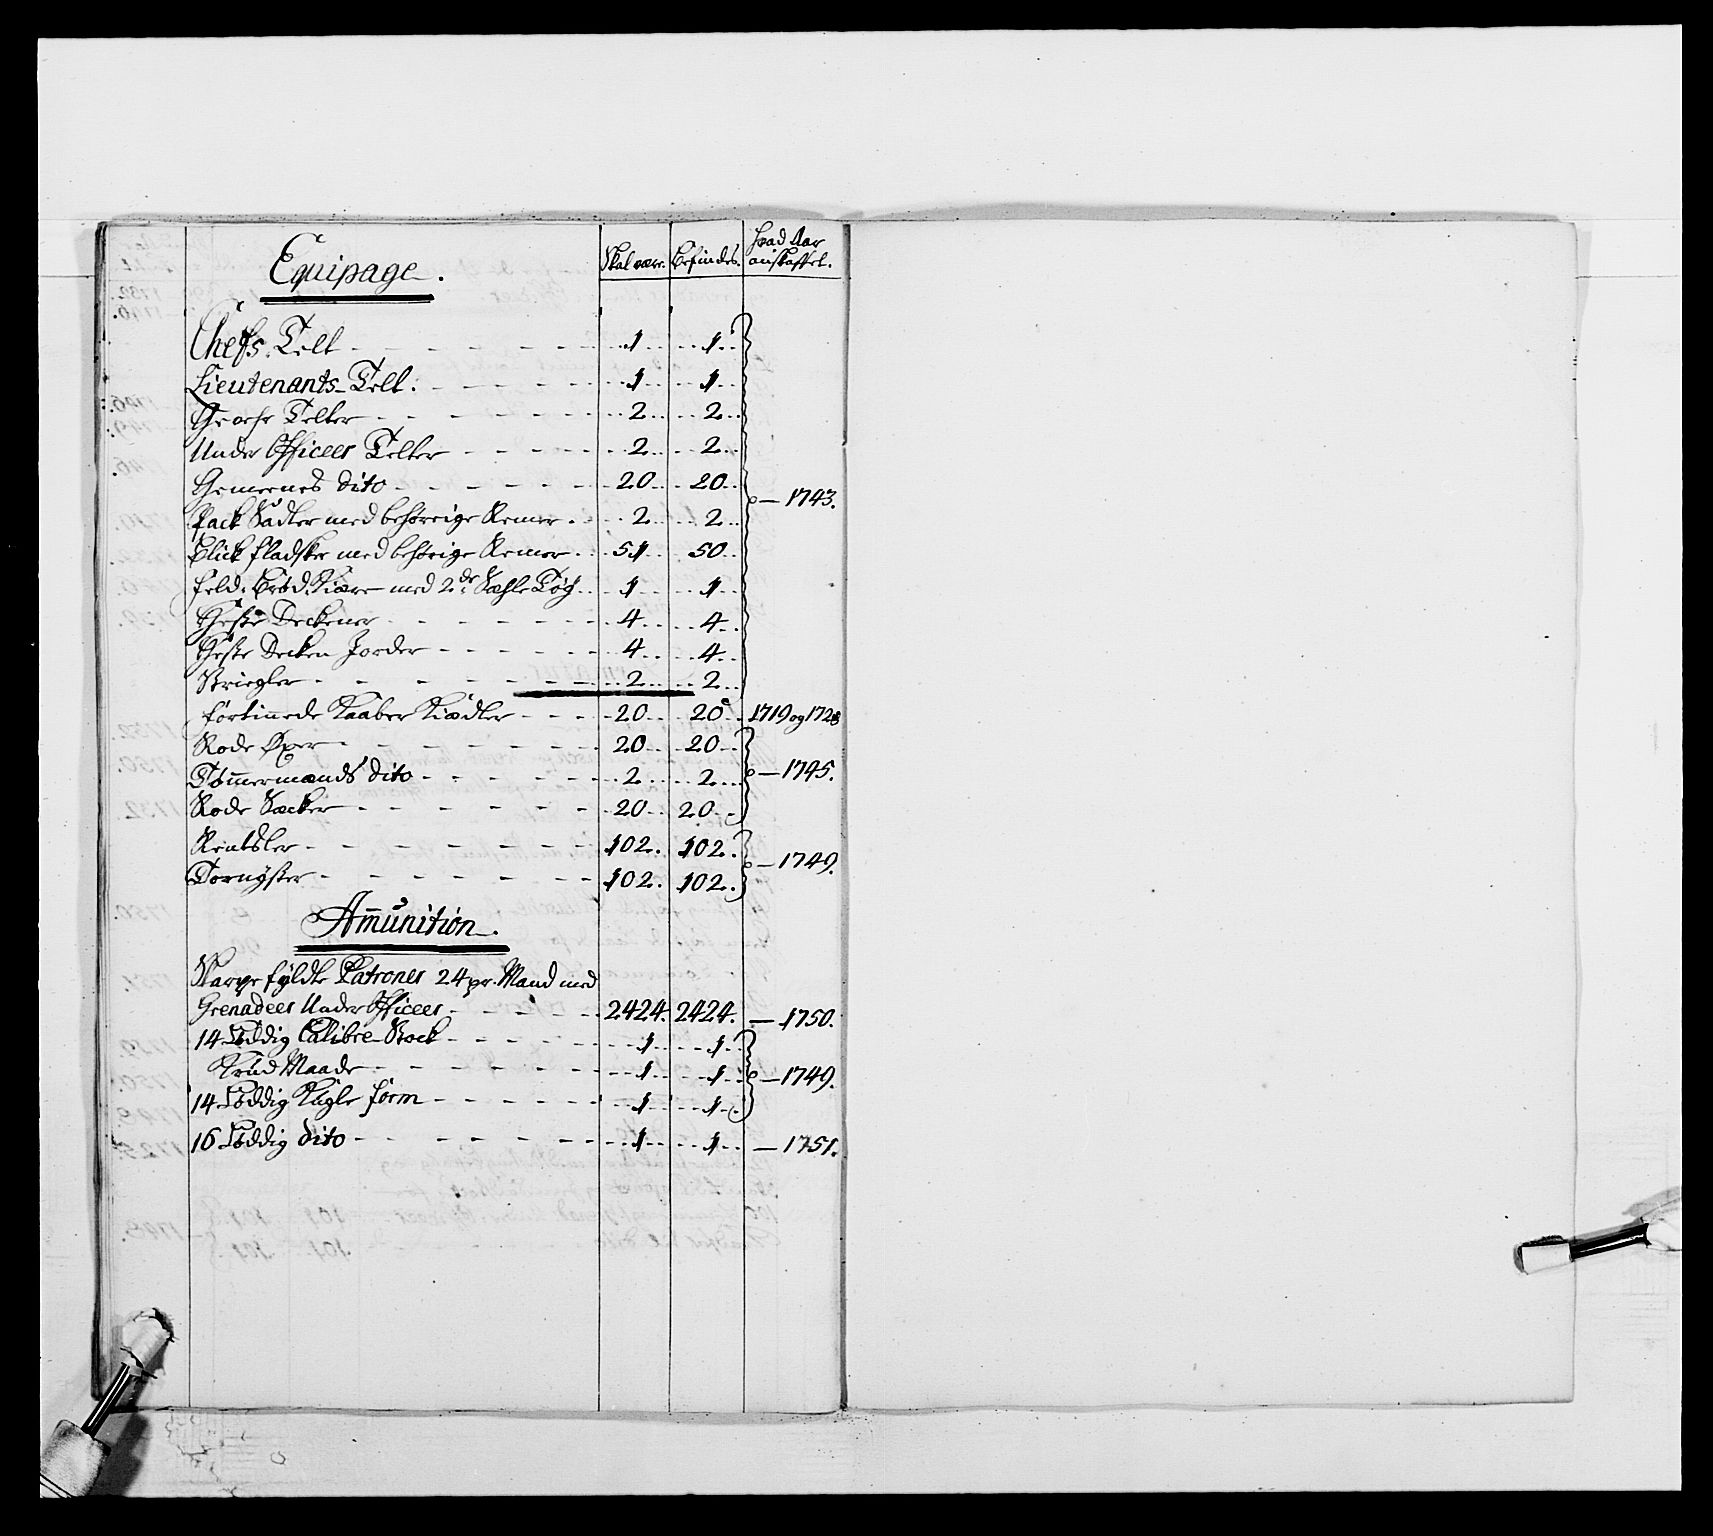 Equipage. Skal være. Befindes. Hvad Aar anskaffet.
Chefs. Telt - - - 1 1
Lieutenants Telt. - - - 1 1
Gevehr Telter - - - 2 2
Under Officeer Telter - - - 2 2
Gemeenes dito - - - 20 20 - 1743.
Pack Sadler med behøreige Remer. 2 2
Blick fladsker med behørige Remer. 51 50
feld. Brød. Kiære med 2de Sæhle Tøÿ 1 1
Heste Deckener - - - 4 4
Heste Decken Jorder - - - 4 4
Striegler - - - 2 2
fortinnede Kaaber Kiædler - - - 20 20 1719 og 1728
Rode Øxer - - - 20 20
Tømmermands dito - - - 2 2 - 1745.
Rode Sæcker - - - 20 20
Rentsler - - - 102. 102.
Tornÿster - - - 102. 102. - 1749.
Amunition.
Skarpe fyldte Patroner 24 pr. Mand med
Grenadeer Under Officeer - - - 2424. 2424. - 1750.
14 Løddig Calibre-Stock - - - 1 1
Krud Maade - - - 1 1 - 1749.
14 Løddig Kugle form - - - 1 1
16 Løddig dito - - - 1 1 - 1751.